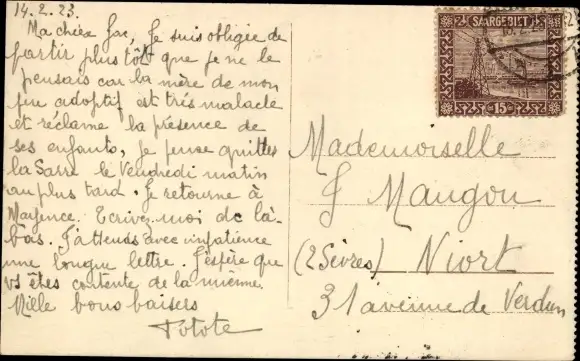 14.2.23.
Ma chère Jac, Je suis obligée de
partir plus tôt que je ne le
pensais car la mère de mon
père adoptif est très malade
et réclame la présence de
ses enfants, je pense quitter
la Sarre le Vendredi matin
au plus tard. Je retourne à
Mayence. Ecrivez-moi de là-
bas. J'attends avec impatience
une longue lettre. J'espère que
vs êtes contente de la mienne.
Mille bons baisers
Totote
SAARGEBIET
15
Mademoiselle
J Maugou
(2 Sèvres) Niort
31 avenue de Verdun